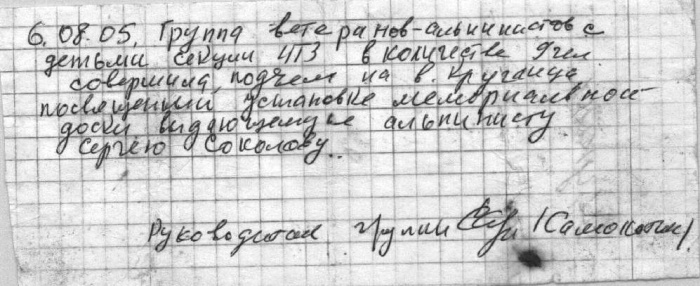 6.08.05. Группа ветеранов-альпинистов с
детьми секции ЧТЗ в количестве 9 чел
совершила подъем на в. Круглица,
посвященный установке мемориальной
доски выдающемуся альпинисту
Сергею Соколову.
Руководитель группы